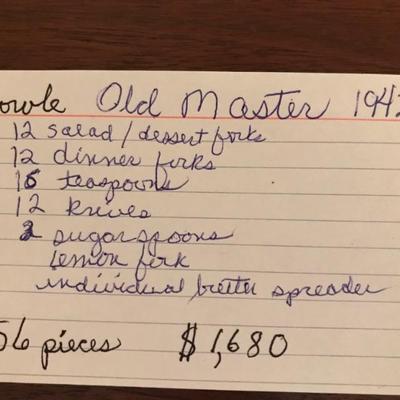 owle Old Master 194
12 salad/dessert forks
12 dinner forks
16 teaspoons
12 knives
2 sugar spoons
lemon fork
individual butter spreader
56 pieces $1,680